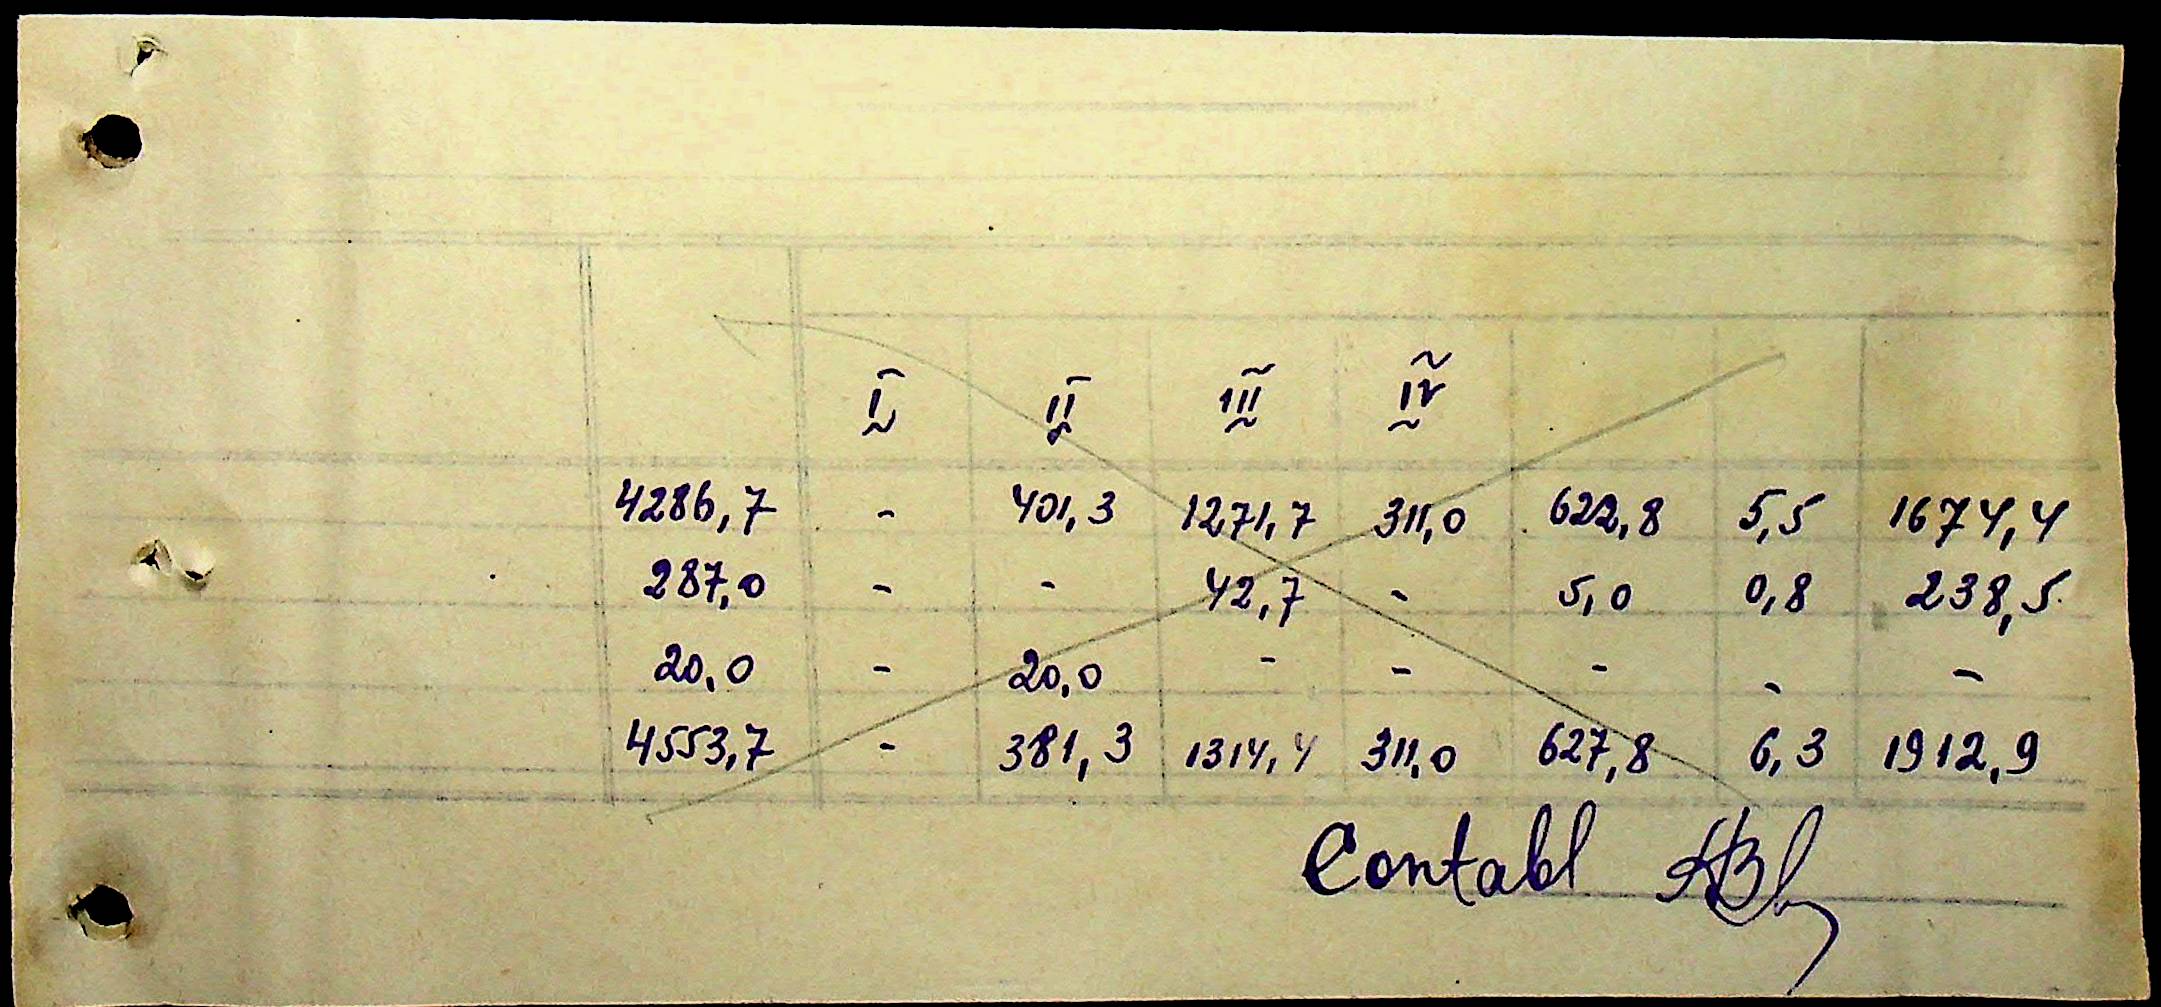 I II III IV
4286,7 - 401,3 1271,7 311,0 622,8 5,5 1674,4
287,0 - - 42,7 - 5,0 0,8 238,5
20,0 - 20,0 - - - - -
4553,7 - 381,3 1314,4 311,0 627,8 6,3 1912,9
Contabl